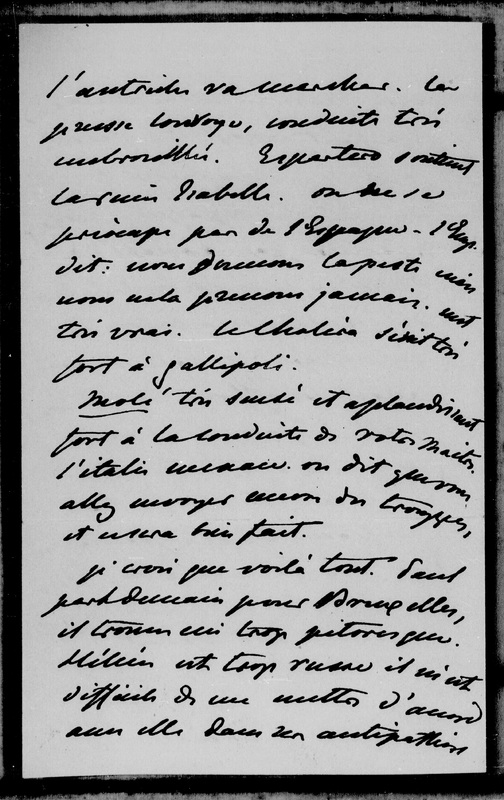 l'autriche va marcher. La
presse louvoye, conduite très
embrouillée. Espartero soutient
la reine Isabelle. on ne se
préoccupe pas de l'Espagne - l'Emp.
dit: nous donnons la peste mais
nous ne la prenons jamais. c'est
très vrai. le Choléra sévit très
fort à gallipoli.
Molé très sensé et applaudissant
fort à la conduite de votre Maitre.
l'italie menace. on dit que vous
allez envoyer encore des trouppes,
et ce sera bien fait.
je crois que voilà tout. Paul
part demain pour Bruxelles,
il trouve ici trop pitoresque.
Hélène est trop russe il m'est
difficile de me mettre d'accord
avec elle dans ses antipathies